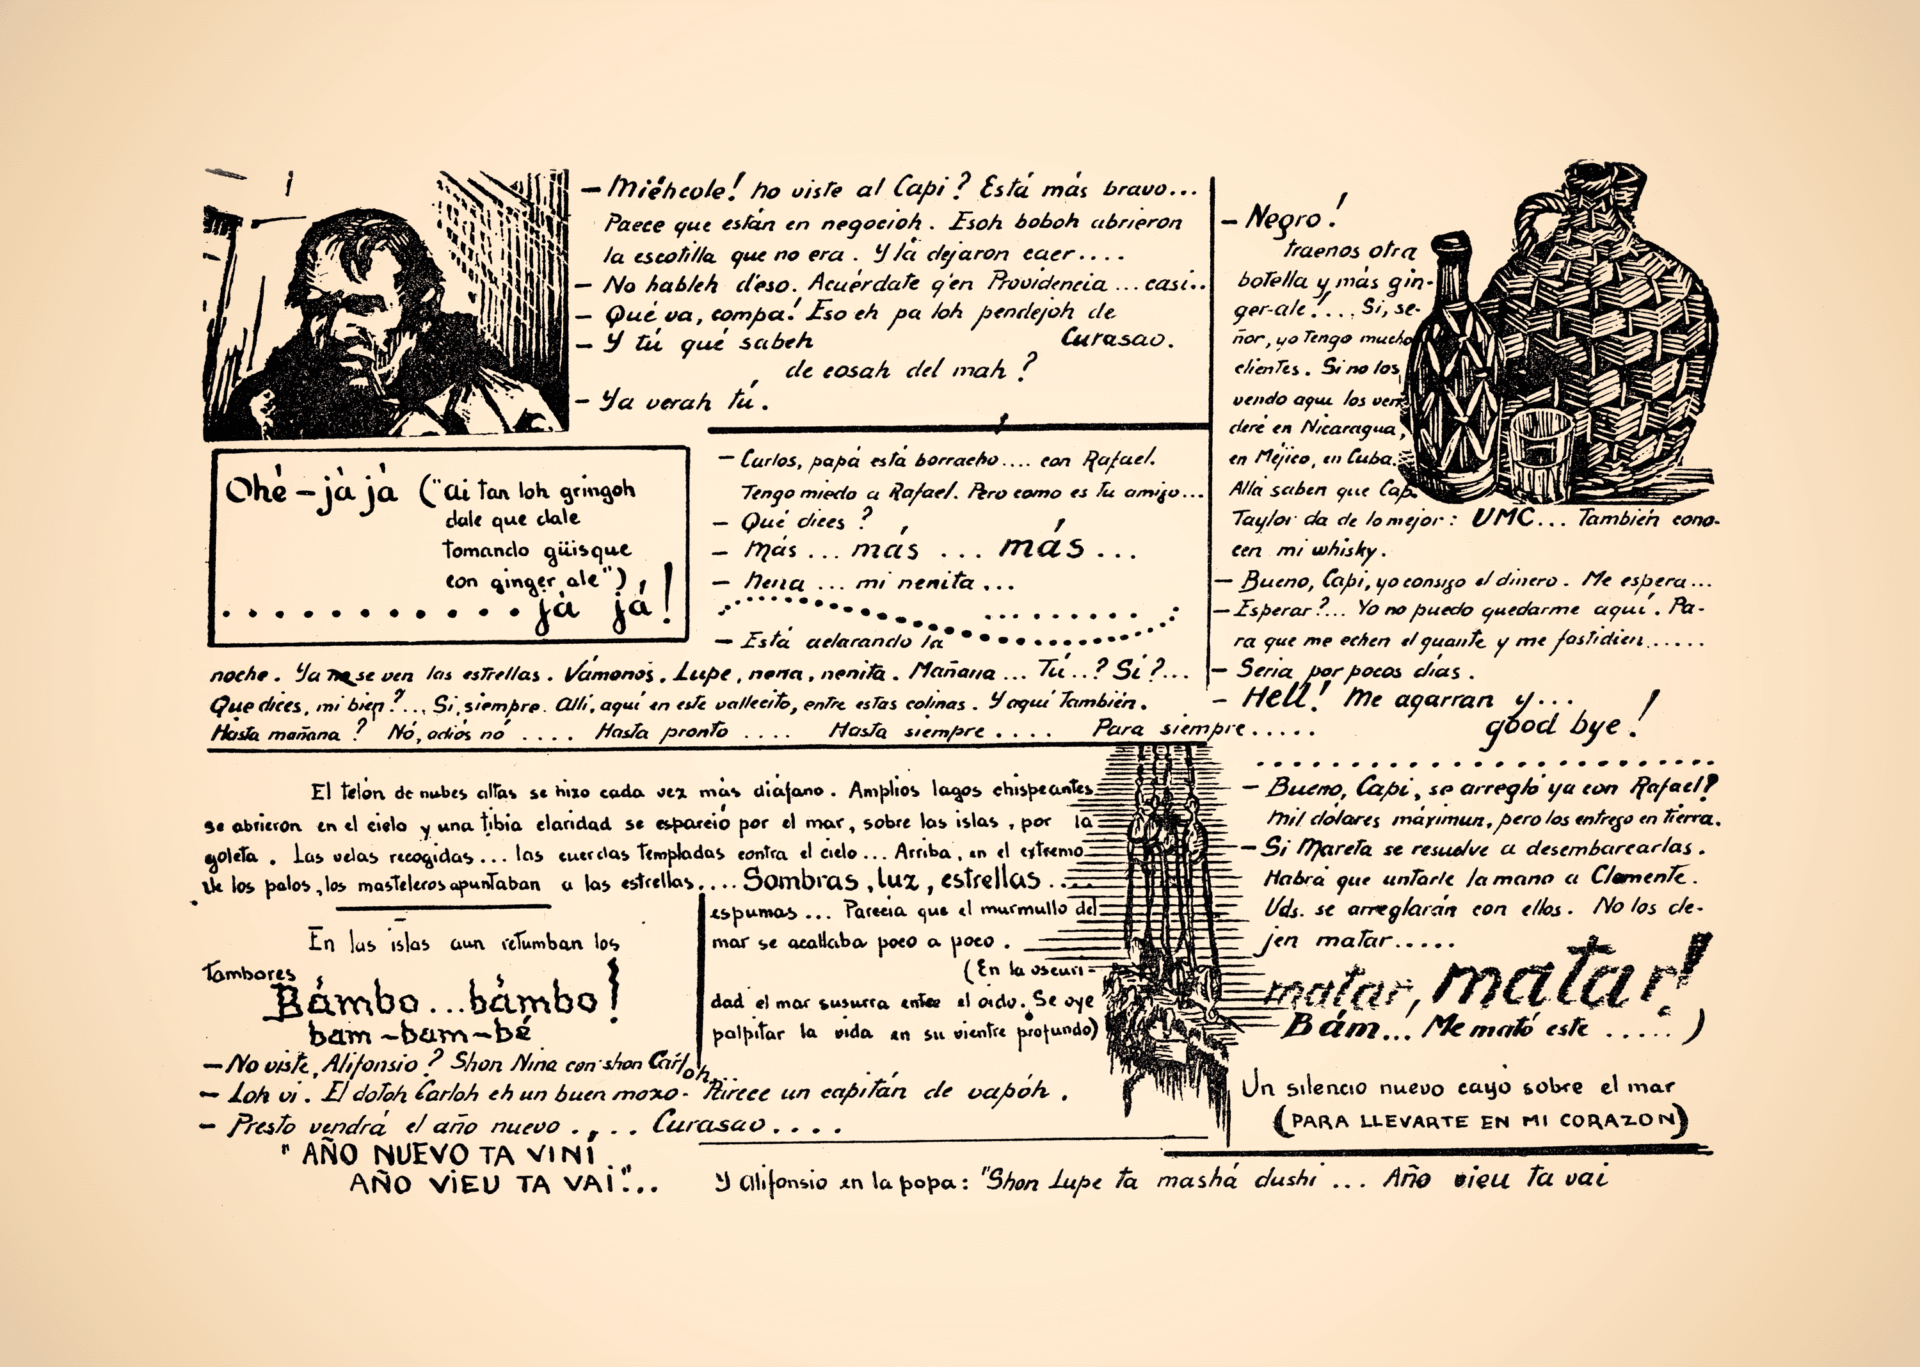 — Miéhcole! no viste al Capi? Está más bravo...
Paece que están en negocioh. Esoh boboh abrieron
la escotilla que no era. Y la dejaron caer....
— No hableh d'eso. Acuérdate q'en Providencia ... casi..
— Qué va, compa! Eso eh pa loh pendejoh de
Curasao.
— Y tú qué sabeh
de cosah del mah?
— Ya verah tú.
Ohé — já já ("ai tan loh gringoh
dale que dale
tomando güisque
con ginger ale")
............ já já!
— Carlos, papá está borracho.... con Rafael.
Tengo miedo a Rafael. Pero como es tu amigo...
— Qué dices?
— Más ... más ... más ...
— Nena ... mi nenita ...
— Está aclarando la
noche. Ya se ven las estrellas. Vámonos, Lupe, nena, nenita. Mañana ... Tú..? Sí?...
Que dices, mi bien?... Si, siempre. Allí, aquí en este vallecito, entre estas colinas. Y aquí también.
Hasta mañana? Nó, adiós nó .... Hasta pronto .... Hasta siempre .... Para siempre.....
— Negro!
traenos otra
botella y más gin-
ger-ale!.... Si, se-
ñor, yo tengo mucho
clientes. Si no los
vendo aquí los ven-
deré en Nicaragua,
en Méjico, en Cuba.
Allá saben que Cap.
Taylor da de lo mejor: UMC... También cono-
cen mi whisky.
— Bueno, Capi, yo consigo el dinero. Me espera...
— Esperar?... Yo no puedo quedarme aquí. Pa-
ra que me echen el guante y me fastidien......
— Seria por pocos días.
— Hell! Me agarran y...
good bye!
El telón de nubes altas se hizo cada vez más diáfano. Amplios lagos chispeantes
se abrieron en el cielo y una tibia claridad se esparció por el mar, sobre las islas, por la
goleta. Las velas recogidas... las cuerdas templadas contra el cielo... Arriba, en el extremo
de los palos, los masteleros apuntaban a las estrellas.... Sombras, luz, estrellas ....
espumas ... Parecia que el murmullo del
mar se acallaba poco a poco.
(En la oscuri-
dad el mar susurra entre el oido. Se oye
palpitar la vida en su vientre profundo)
En las islas aun retumban los
tambores
Bámbo...bámbo!
bam-bam-bé
— No viste, Alifonsio? Shon Nina con shon Carloh...
— Loh vi. El dotoh Carloh eh un buen mozo. Parece un capitán de vapóh.
— Presto vendrá el año nuevo .... Curasao....
"AÑO NUEVO TA VINÍ
AÑO VIEU TA VAI"...
— Bueno, Capi, se arregló ya con Rafael?
Mil dólares máximun, pero los entrego en tierra.
— Si Mareta se resuelve a desembarcarlas.
Habrá que untarle la mano a Clemente.
Uds. se arreglarán con ellos. No los de-
jen matar.....
matar, matar!
Bám... Me mató este .....)
Un silencio nuevo cayó sobre el mar
(PARA LLEVARTE EN MI CORAZON)
Y Alifonsio en la popa: "Shon Lupe ta mashá dushi ... Año vieu ta vai